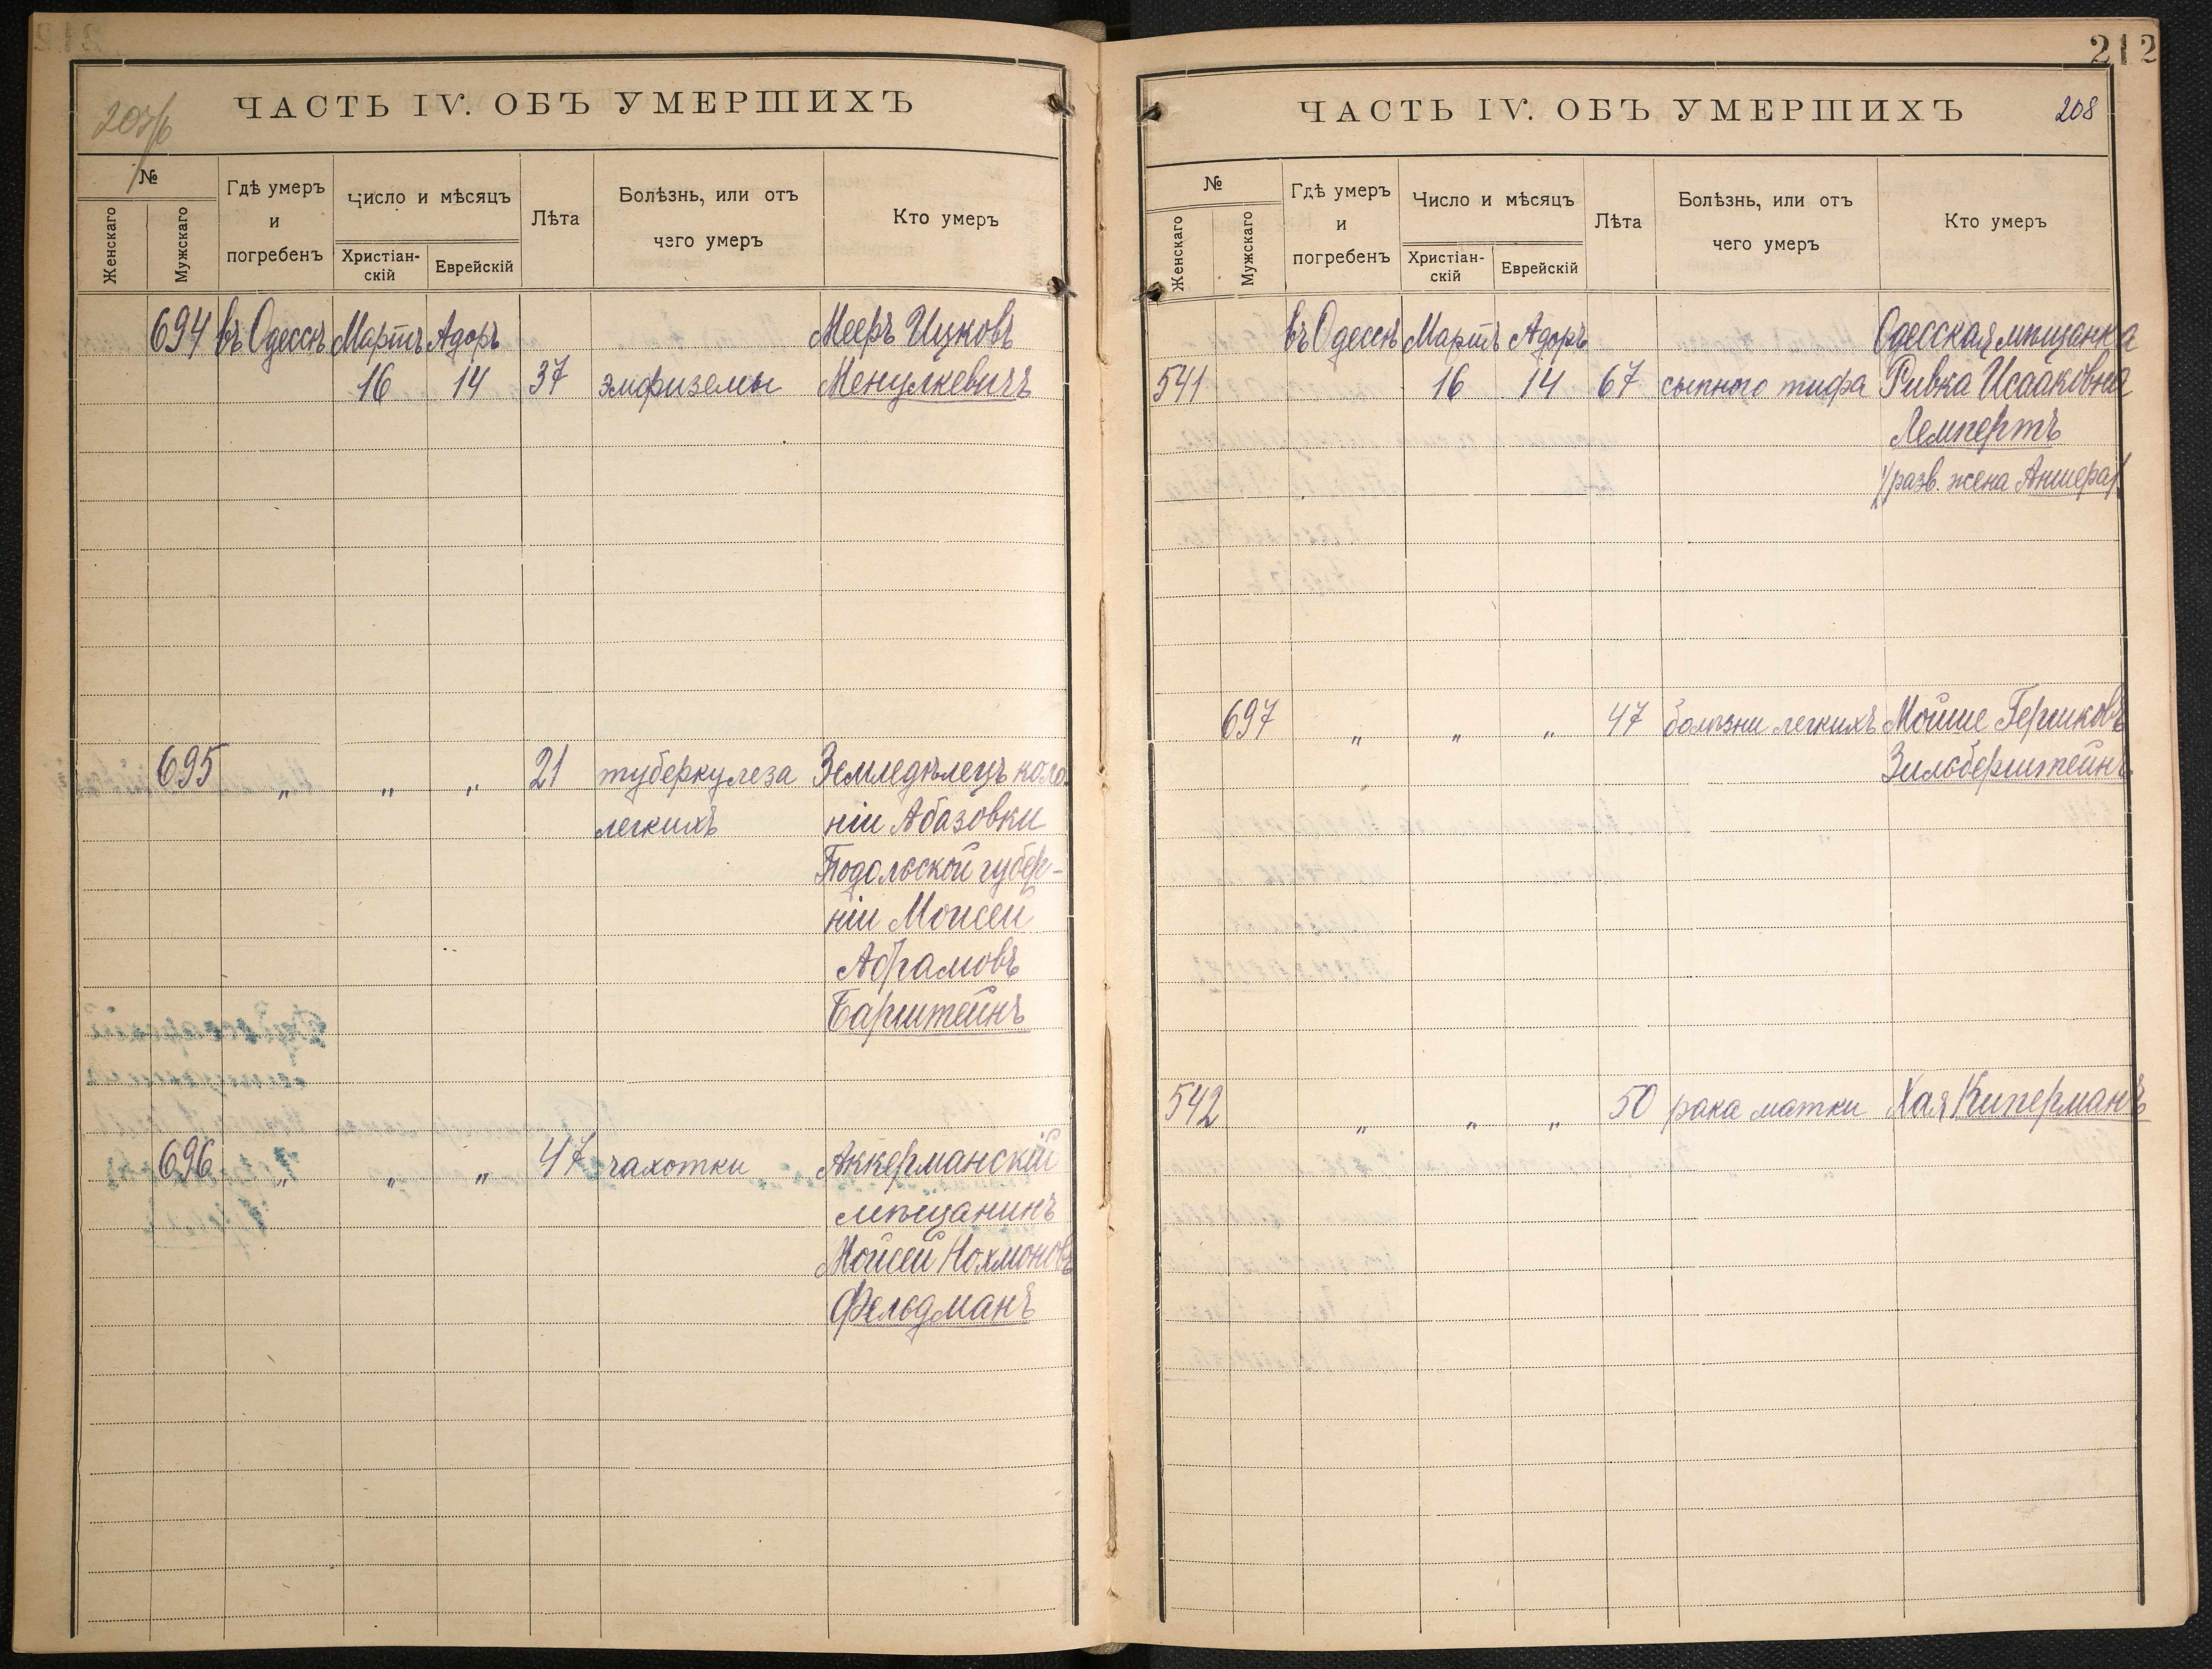 207/б
ЧАСТЬ IV. ОБЪ УМЕРШИХЪ
№
Женскаго
Мужскаго
Гдѣ умеръ и погребенъ
Число и мѣсяцъ
Христіан-
скій
Еврейскій
Лѣта
Болѣзнь, или отъ
чего умеръ
Кто умеръ
694 въ Одессѣ Мартъ Адоръ Мееръ Ицковъ
16 14 37 эмфиземы Менулкевичъ
695 „ „ „ 21 туберкулеза Земледѣлецъ коло-
легкихъ ніи Абазовки
Подольской губер-
ніи Моисей
Абрамовъ
Барштейнъ
696 „ „ „ 47 чахотки Аккерманскій
мѣщанинъ
Мойсей Нохмоновъ
Фельдманъ
212
ЧАСТЬ IV. ОБЪ УМЕРШИХЪ 208
№
Женскаго
Мужскаго
Гдѣ умеръ
и
погребенъ
Число и мѣсяцъ
Христіан-
скій
Еврейскій
Лѣта
Болѣзнь, или отъ
чего умеръ
Кто умеръ
въ Одессѣ Мартъ Адоръ Одесская мѣщанка
541 16 14 67 сыпного тифа Ривка Исааковна
Лемпертъ
/разв. жена Аншера/
697 „ „ „ 47 болѣзни легкихъ Мойше Гершковъ
Зильберштейнъ
542 „ „ „ 50 рака матки Хая Киперманъ